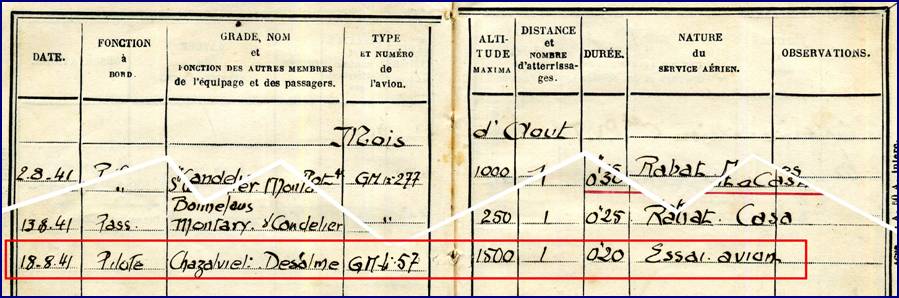 DATE. FONCTION à BORD. GRADE, NOM et FONCTION DES AUTRES MEMBRES de l'équipage et des passagers. TYPE ET NUMÉRO de l'avion. ALTI- TUDE MAXIMA DISTANCE et NOMBRE d'atterrissa- ges. DURÉE. NATURE du SERVICE AÉRIEN. OBSERVATIONS.
Mois d'Aout
2.8.41 GM n: 277 1000 1 Rabat
0'30
Bonnelaus
13.8.41 Pass. Montary. d'Candelier " 250 1 0'25 Rabat. Casa
18.8.41 Pilote Chazalviel: Desalme GM-n: 57 1500 1 0'20 Essai. avion